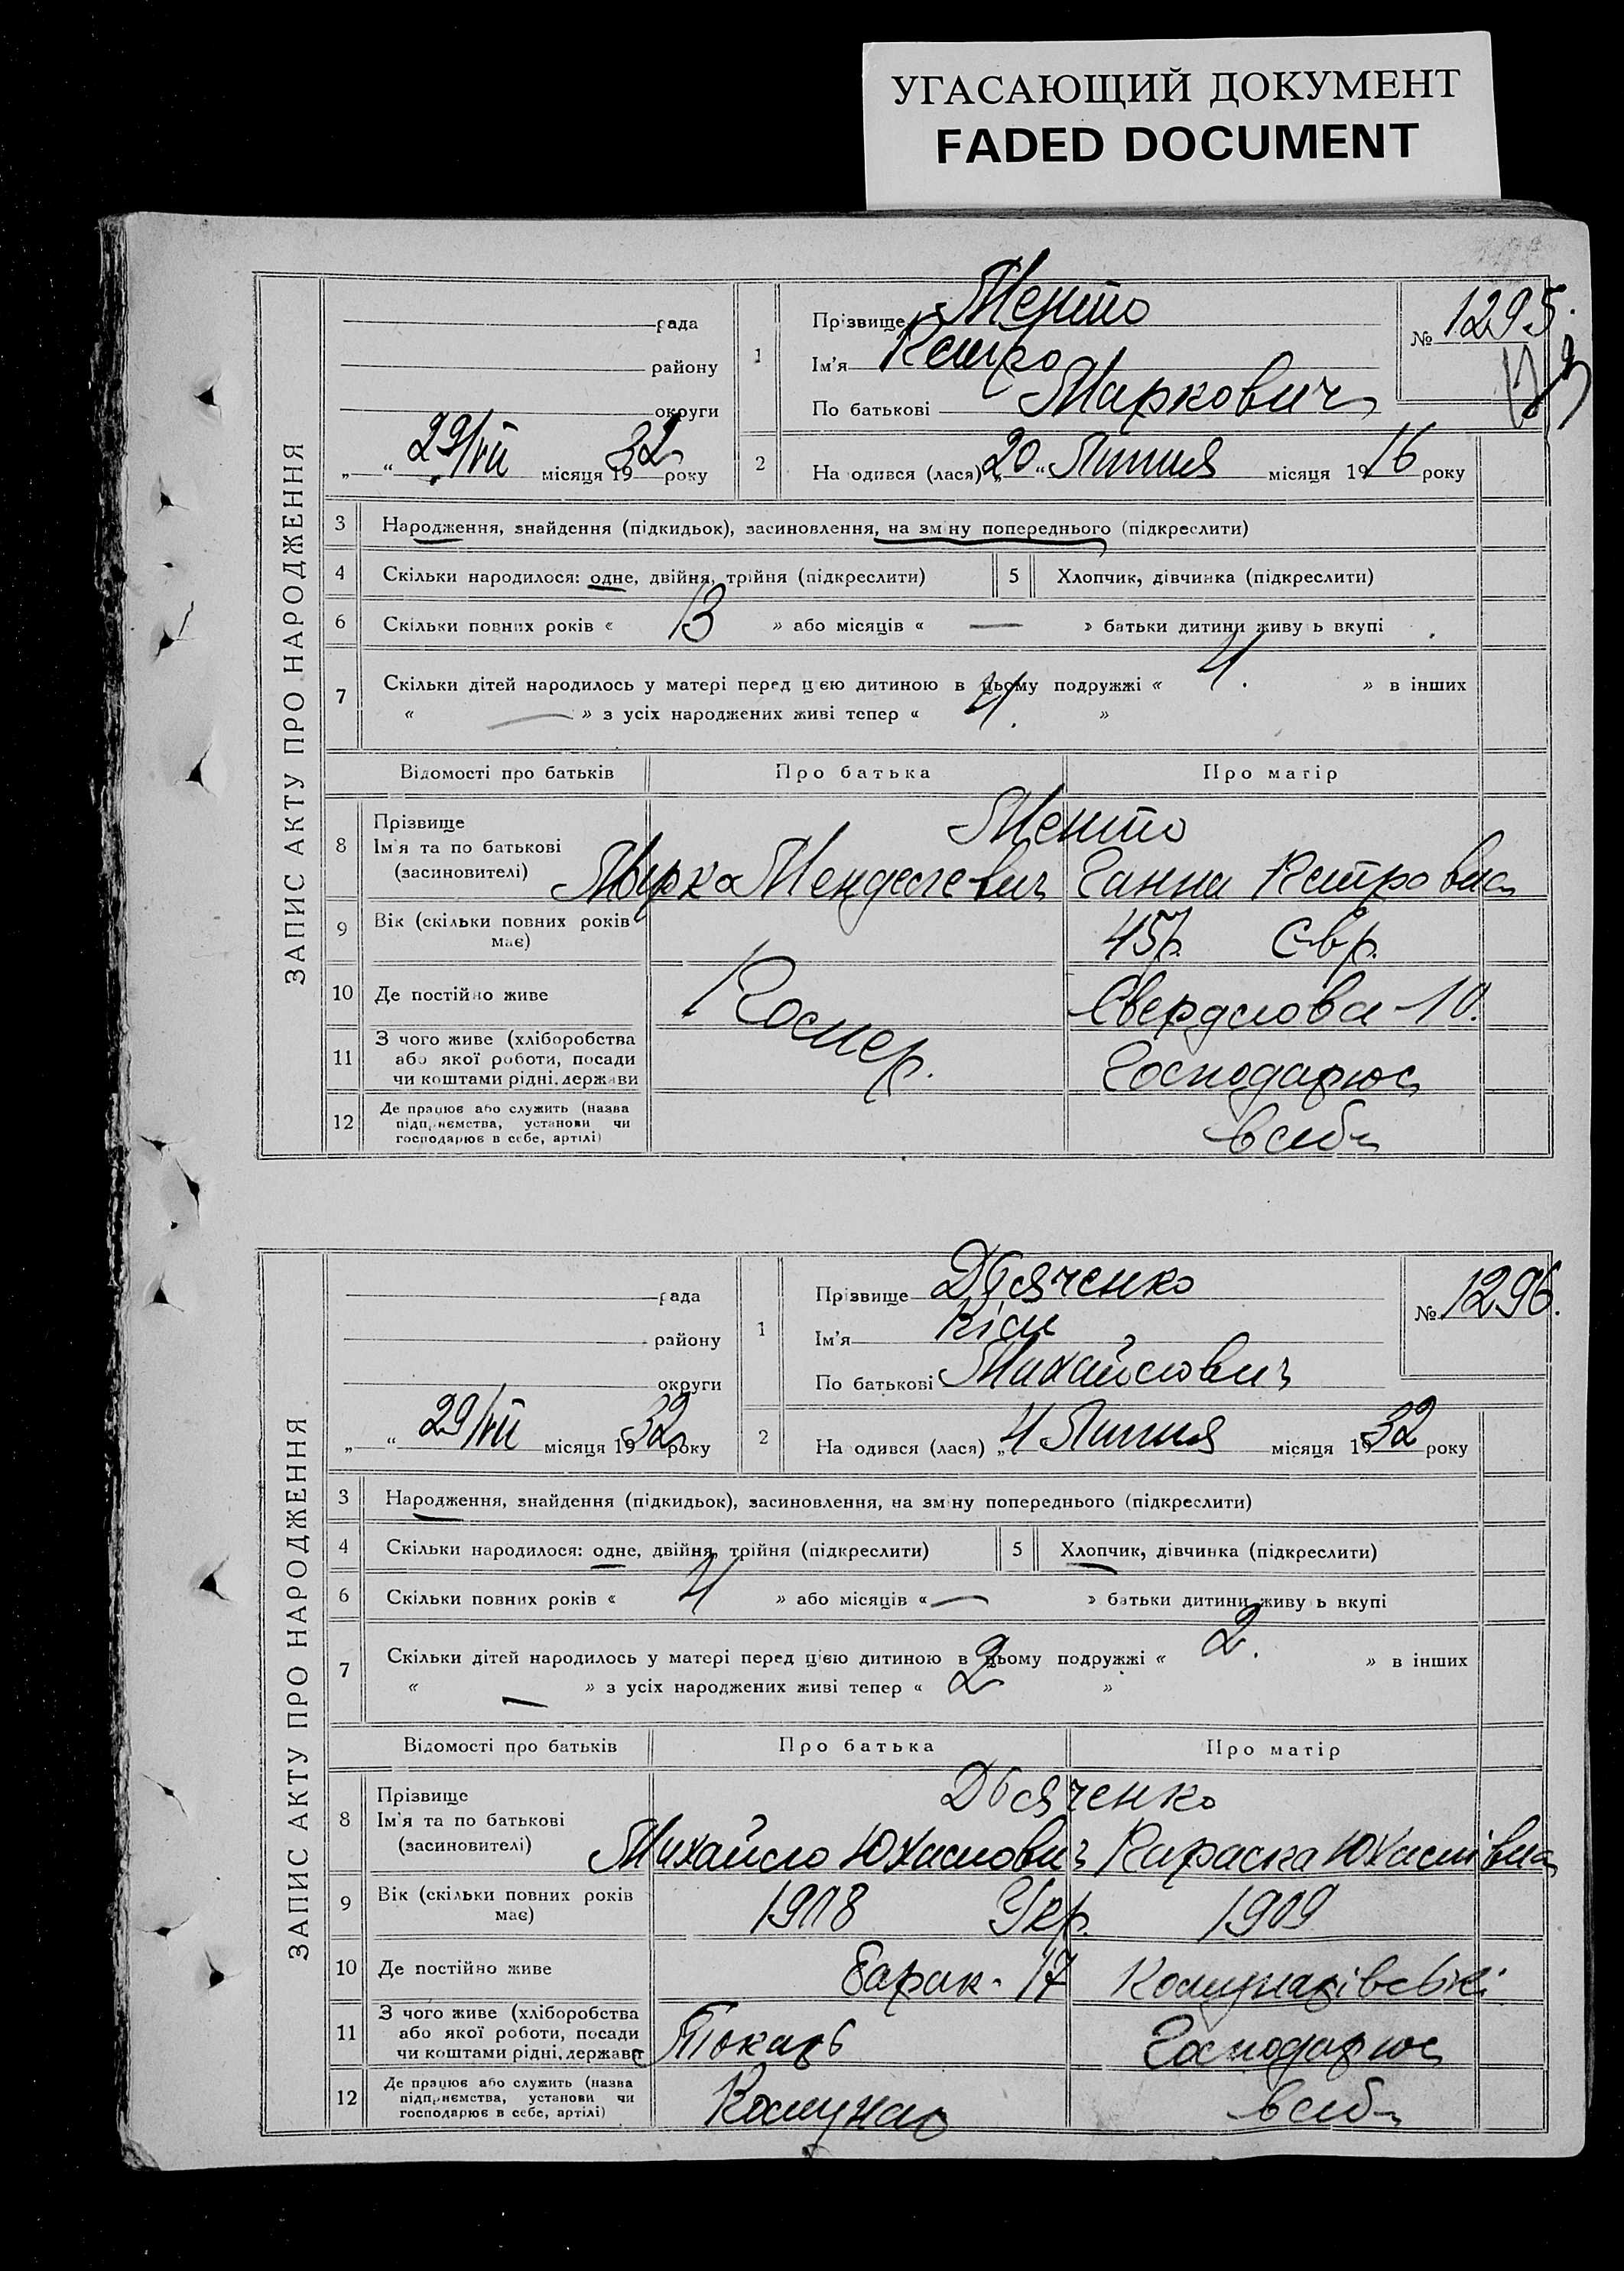 УГАСАЮЩИЙ ДОКУМЕНТ
FADED DOCUMENT
ЗАПИС АКТУ ПРО НАРОДЖЕННЯ
рада
району
округи
„ “ 29/VII місяця 1932 року
1
Прізвище
Ім'я
По батькові Маркович
№ 1295.
2
На одився (лася) „20“ Липня місяця 1916 року
3 Народження, знайдення (підкидьок), засиновлення, на зміну попереднього (підкреслити)
4 Скільки народилося: одне, двійня, трійня (підкреслити) 5 Хлопчик, дівчинка (підкреслити)
6 Скільки повних років « 13 » або місяців « — » батьки дитини живу ь вкупі
7 Скільки дітей народилось у матері перед цією дитиною в цьому подружжі « 4. » в інших
« — » з усіх народжених живі тепер « 4. »
Відомості про батьків Про батька Про матір
8 Прізвище
Ім'я та по батькові
(засновителі)
Ганна Петровна
9 Вік (скільки повних років має) 45р. Євр.
10 Де постійно живе Свердлова - 10.
11 З чого живе (хліборобства або якої роботи, посади чи коштами рідні, держави Господарює
12 Де працює або служить (назва підприємства, установи чи господарює в себе, артілі)
ЗАПИС АКТУ ПРО НАРОДЖЕННЯ
рада
району
округи
„ “ 29/VII місяця 1932 року
1
Прізвище Дьяченко
Ім'я Кім
По батькові Михайлович
№ 1296.
2
На одився (лася) „4 Липня місяця 1932 року
3 Народження, знайдення (підкидьок), засиновлення, на зміну попереднього (підкреслити)
4 Скільки народилося: одне, двійня, трійня (підкреслити) 5 Хлопчик, дівчинка (підкреслити)
6 Скільки повних років « 4 » або місяців « — » батьки дитини живу ь вкупі
7 Скільки дітей народилось у матері перед цією дитиною в цьому подружжі « 2. » в інших
« — » з усіх народжених живі тепер « 2 »
Відомості про батьків Про батька Про матір
Дьяченко
8 Прізвище
Ім'я та по батькові
(засиновителі)
Михайло Юхимович Параска Юхимівна
9 Вік (скільки повних років має) Укр. 1909
10 Де постійно живе Барак - 17
11 З чого живе (хліборобства або якої роботи, посади чи коштами рідні, держави Токарь Господарює
12 Де працює або служить (назва підприємства, установи чи господарює в себе, артілі) Комунар